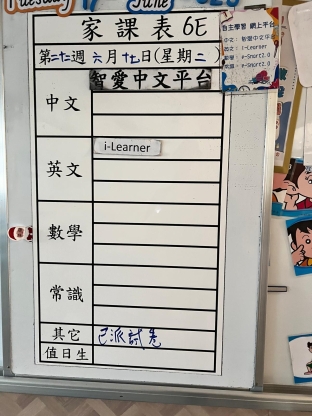 Tuesday 17 June
家課表 6E
第二十二週 六月十七日(星期二)
自主學習 網上平台
中文：智愛中文平台
英文：i-Learner
數學：e-Smart2.0
常識：e-Smart2.0
智愛中文平台
中文
i-Learner
英文
數學
常識
其它 已派試卷
值日生